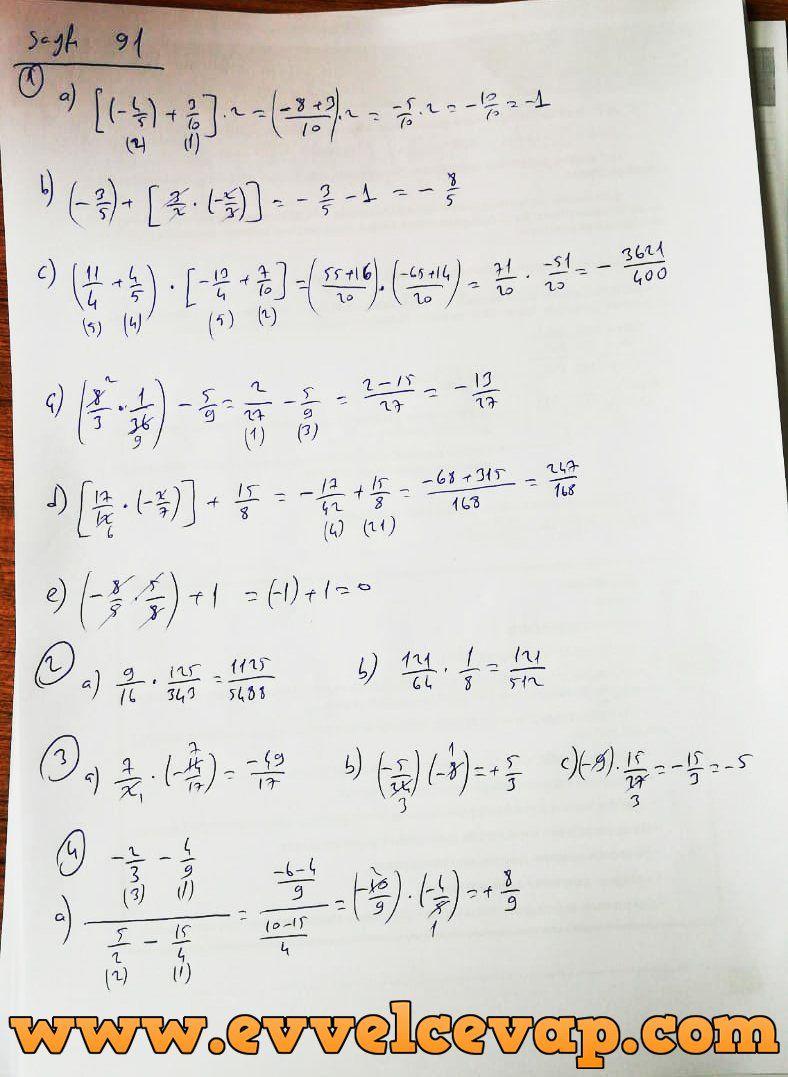 Sayfa 91
① a) [(-4/5) + 3/10] . 2 = (-8+3/10) . 2 = -5/10 . 2 = -10/10 = -1
(2) (1)
b) (-3/5) + [3/2 . (-2/3)] = -3/5 - 1 = -8/5
c) (11/4 + 4/5) . [-13/4 + 7/10] = (55+16/20) . (-65+14/20) = 71/20 . -51/20 = -3621/400
(5) (4) (5) (2)
ç) (8/3 . 1/36) - 5/9 = 2/27 - 5/9 = 2-15/27 = -13/27
2 9 (1) (3)
d) [17/12 . (-2/7)] + 15/8 = -17/42 + 15/8 = -68+315/168 = 247/168
6 (4) (21)
e) (-8/5 . 5/8) + 1 = (-1) + 1 = 0
② a) 9/16 . 125/343 = 1125/5488 b) 121/64 . 1/8 = 121/512
③ a) 7/2 . (-14/17) = -49/17 b) (-5/24) (-8) = +5/3 c) (-9) . 15/27 = -15/3 = -5
1 7 3 1 3
④
a) -2/3 - 4/9 / 5/2 - 15/4 = -6-4/9 / 10-15/4 = (-10/9) . (-4/5) = +8/9
(3) (1) 2 1
(2) (1)
www.evvelcevap.com